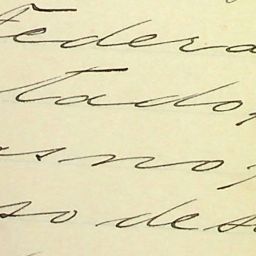 Federa
tado,
as no
so de s